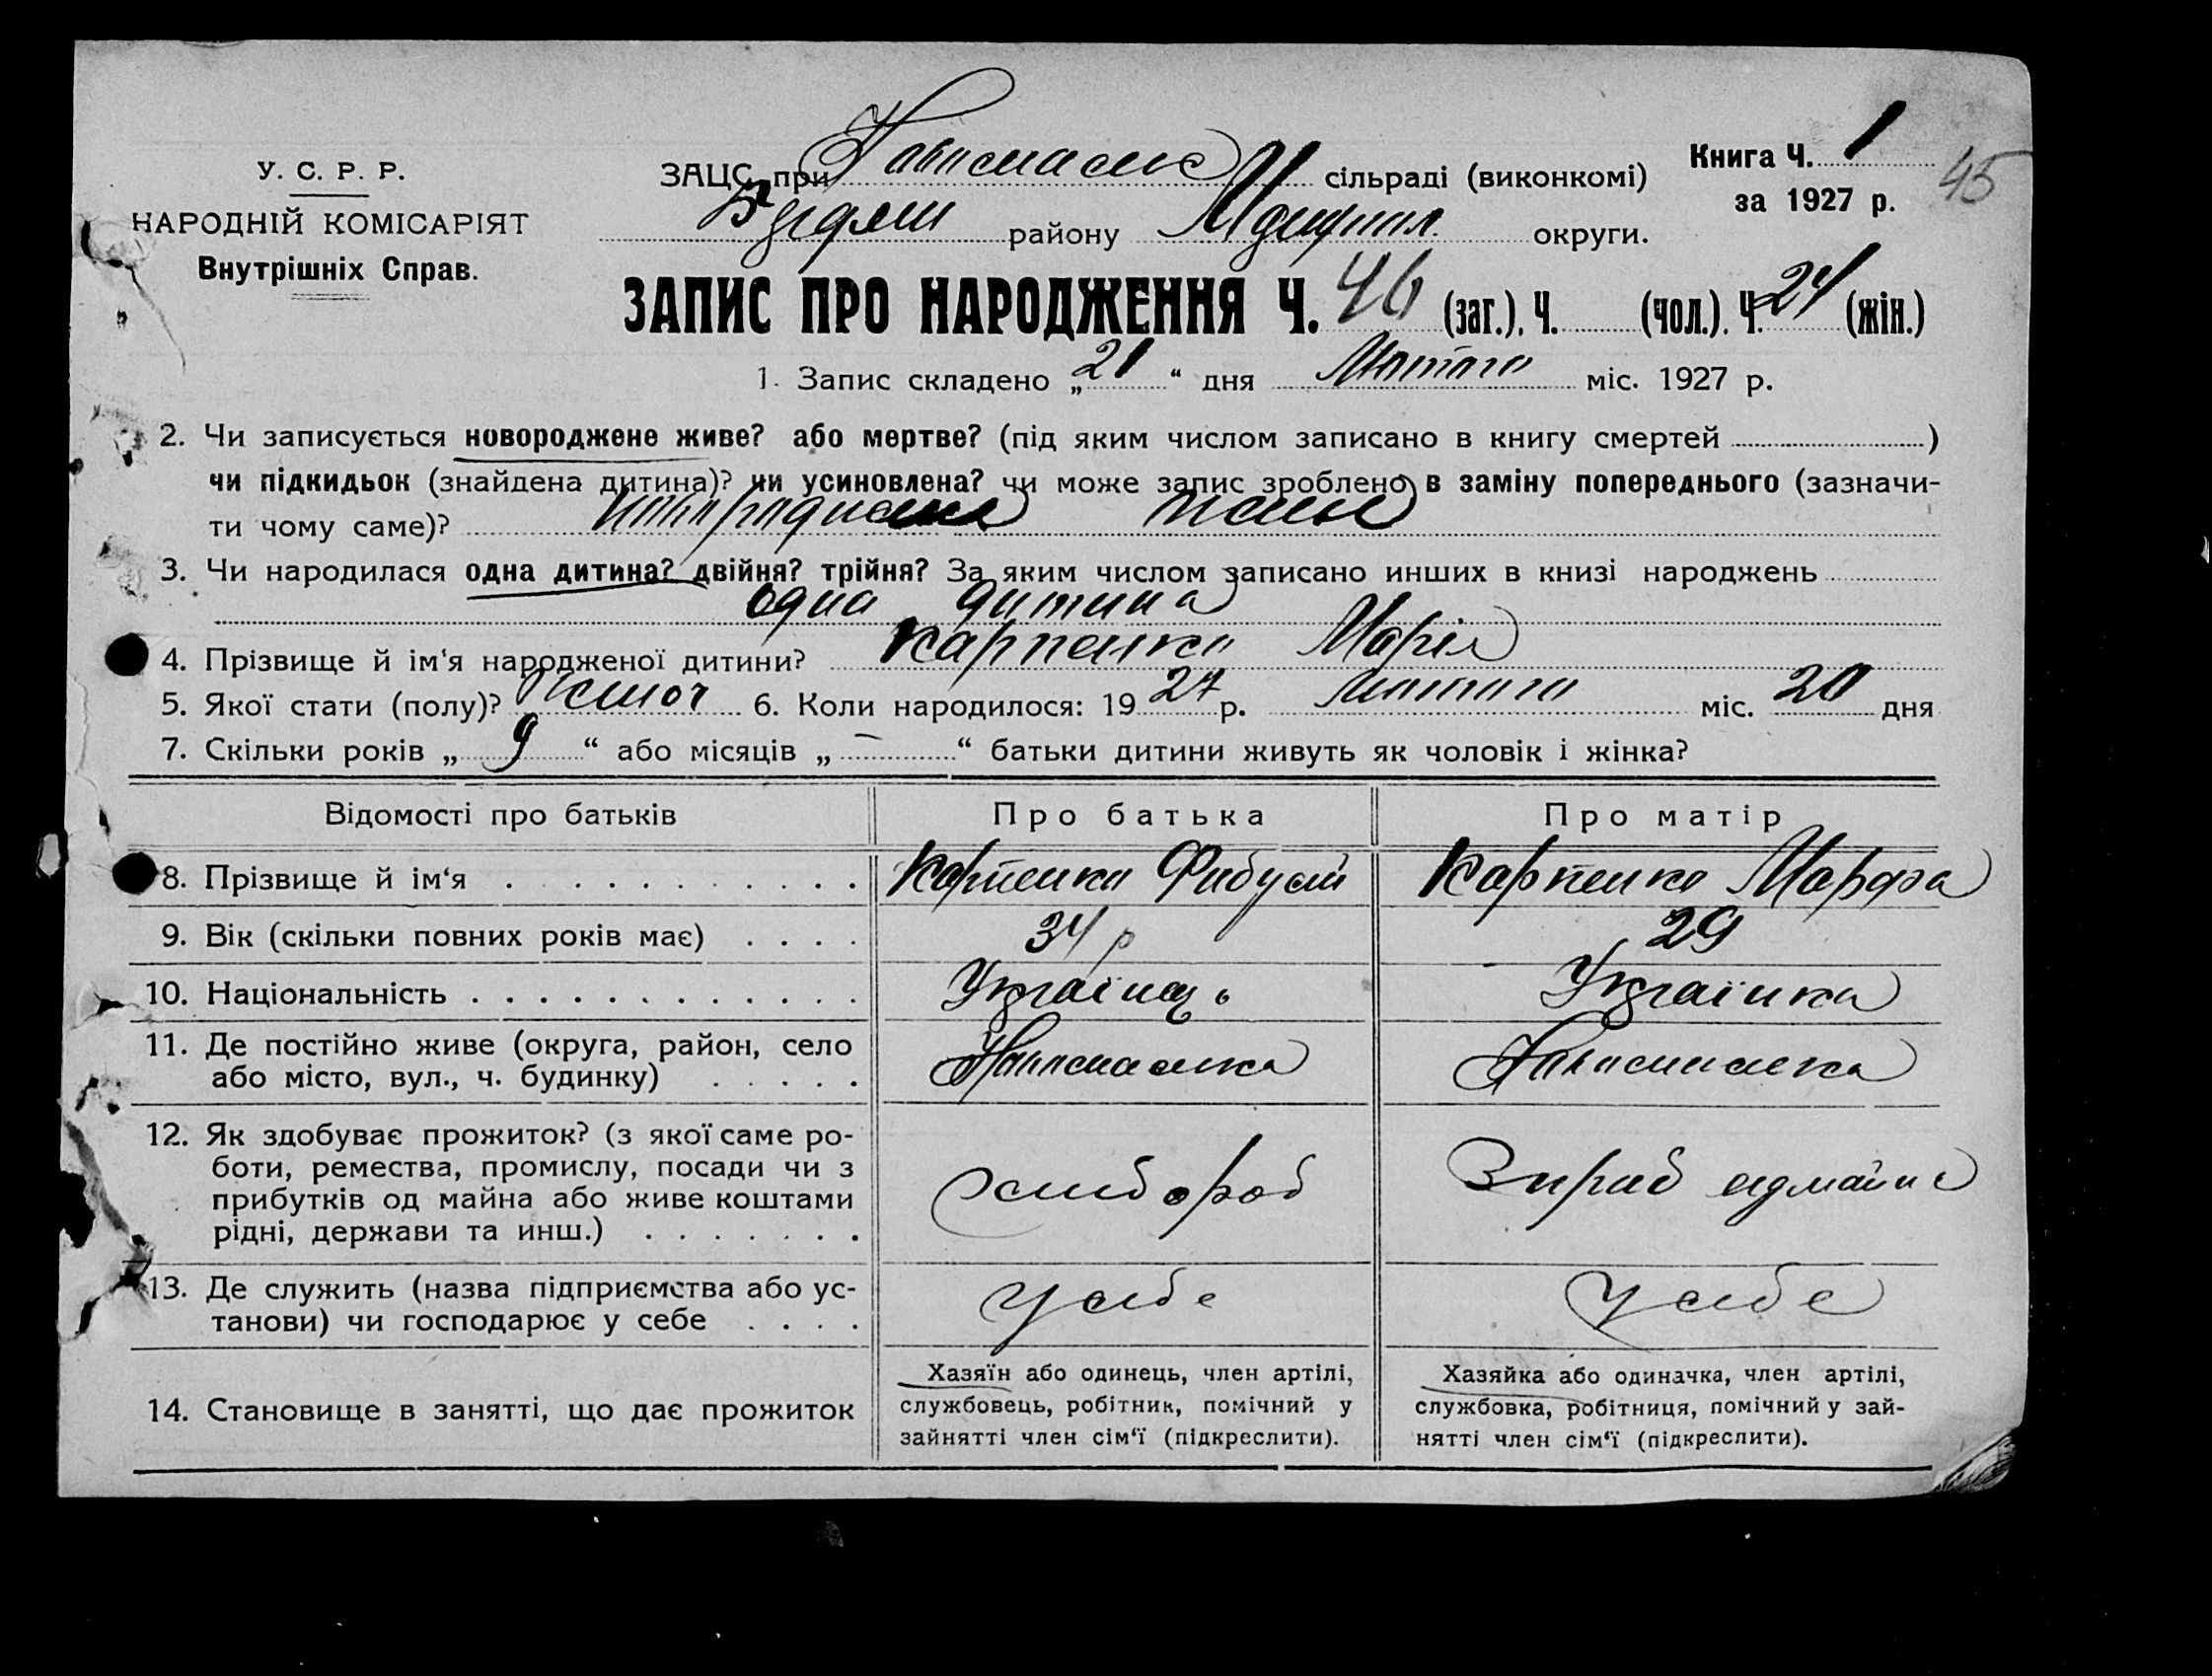 У. С. Р. Р.
НАРОДНІЙ КОМІСАРІЯТ
Внутрішніх Справ.
ЗАЦС при сільраді (виконкомі)
району округи.
Книга Ч. 1
за 1927 р.
45
ЗАПИС ПРО НАРОДЖЕННЯ Ч. 46 (заг.), Ч. (чол.). Ч. 24 (жін.)
1. Запис складено „21“ дня Лютого міс. 1927 р.
2. Чи записується новороджене живе? або мертве? (під яким числом записано в книгу смертей )
чи підкидьок (знайдена дитина)? чи усиновлена? чи може запис зроблено в заміну попереднього (зазначи-
ти чому саме)?
3. Чи народилася одна дитина? двійня? трійня? За яким числом записано инших в книзі народжень
одна дитина
4. Прізвище й ім‘я народженої дитини? Карпенко Марія
5. Якої стати (полу)? 6. Коли народилося: 1927 р. Лютого міс. 20 дня
7. Скільки років „ 9 “ або місяців „ – “ батьки дитини живуть як чоловік і жінка?
Відомості про батьків Про батька Про матір
8. Прізвище й ім‘я Карпенко Карпенко Марфа
9. Вік (скільки повних років має) 34 р 29
10. Національність Українць Українка
11. Де постійно живе (округа, район, село
або місто, вул., ч. будинку)
12. Як здобуває прожиток? (з якої саме ро-
боти, ремества, промислу, посади чи з
прибутків од майна або живе коштами
рідні, держави та инш.)
Хлибороб
13. Де служить (назва підприємства або ус-
танови) чи господарює у себе
у себе у себе
14. Становище в занятті, що дає прожиток
Хазяїн або одинець, член артілі,
службовець, робітник, помічний у
зайнятті член сім‘ї (підкреслити).
Хазяйка або одиначка, член артілі,
службовка, робітниця, помічний у зай-
нятті член сім‘ї (підкреслити).